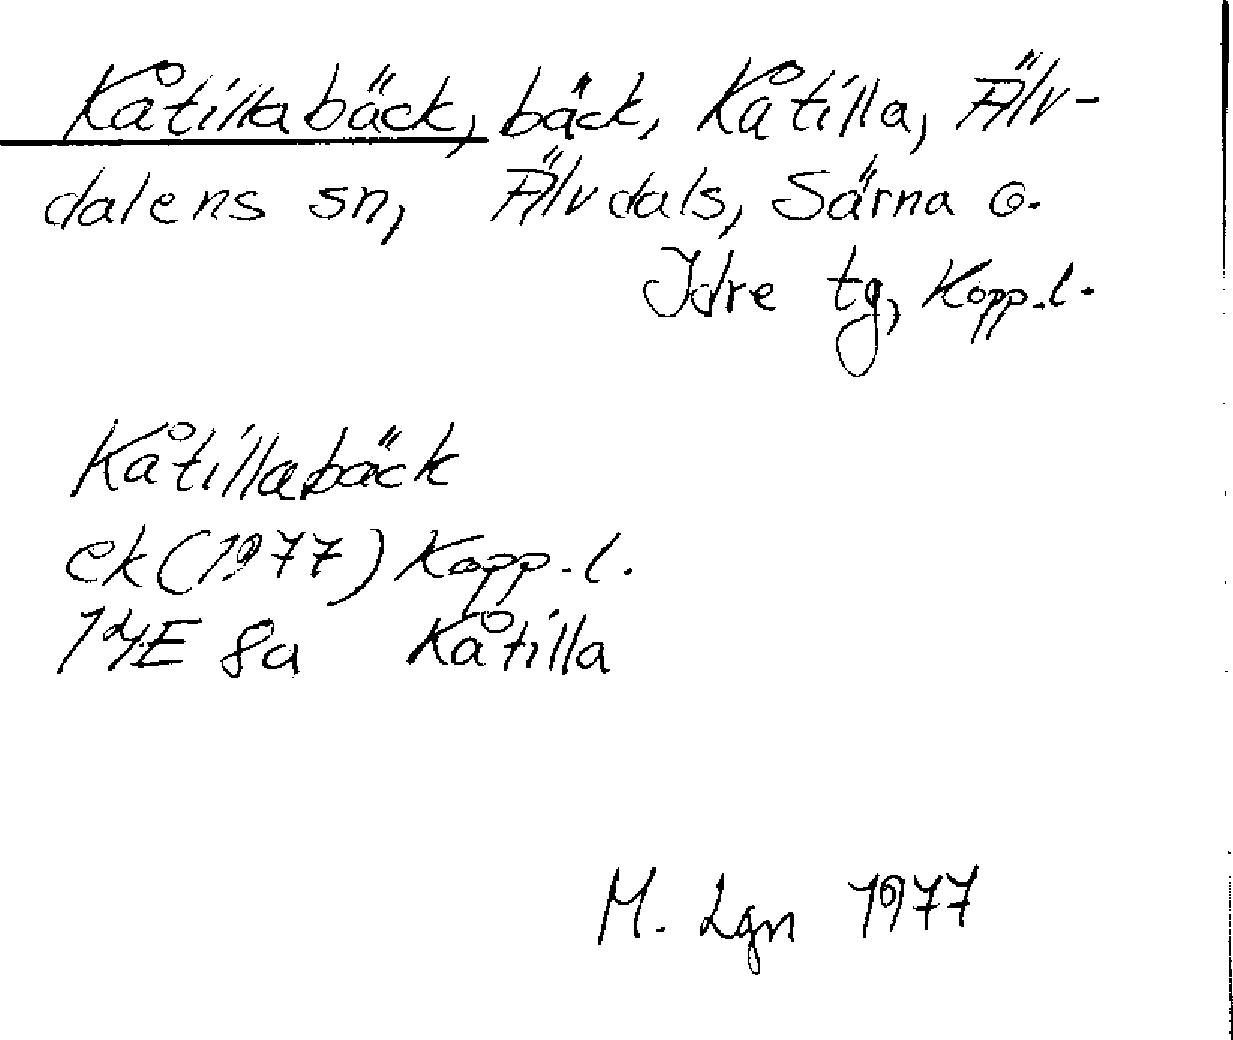 Kåtillabäck, bäck, Kåtilla, Älv-
dalens sn, Älvdals, Särna o.
Idre tg, Kopp.l.
Kåtillabäck
ek (1977) Kopp.l.
14E 8a Kåtilla
M. Lgn 1977